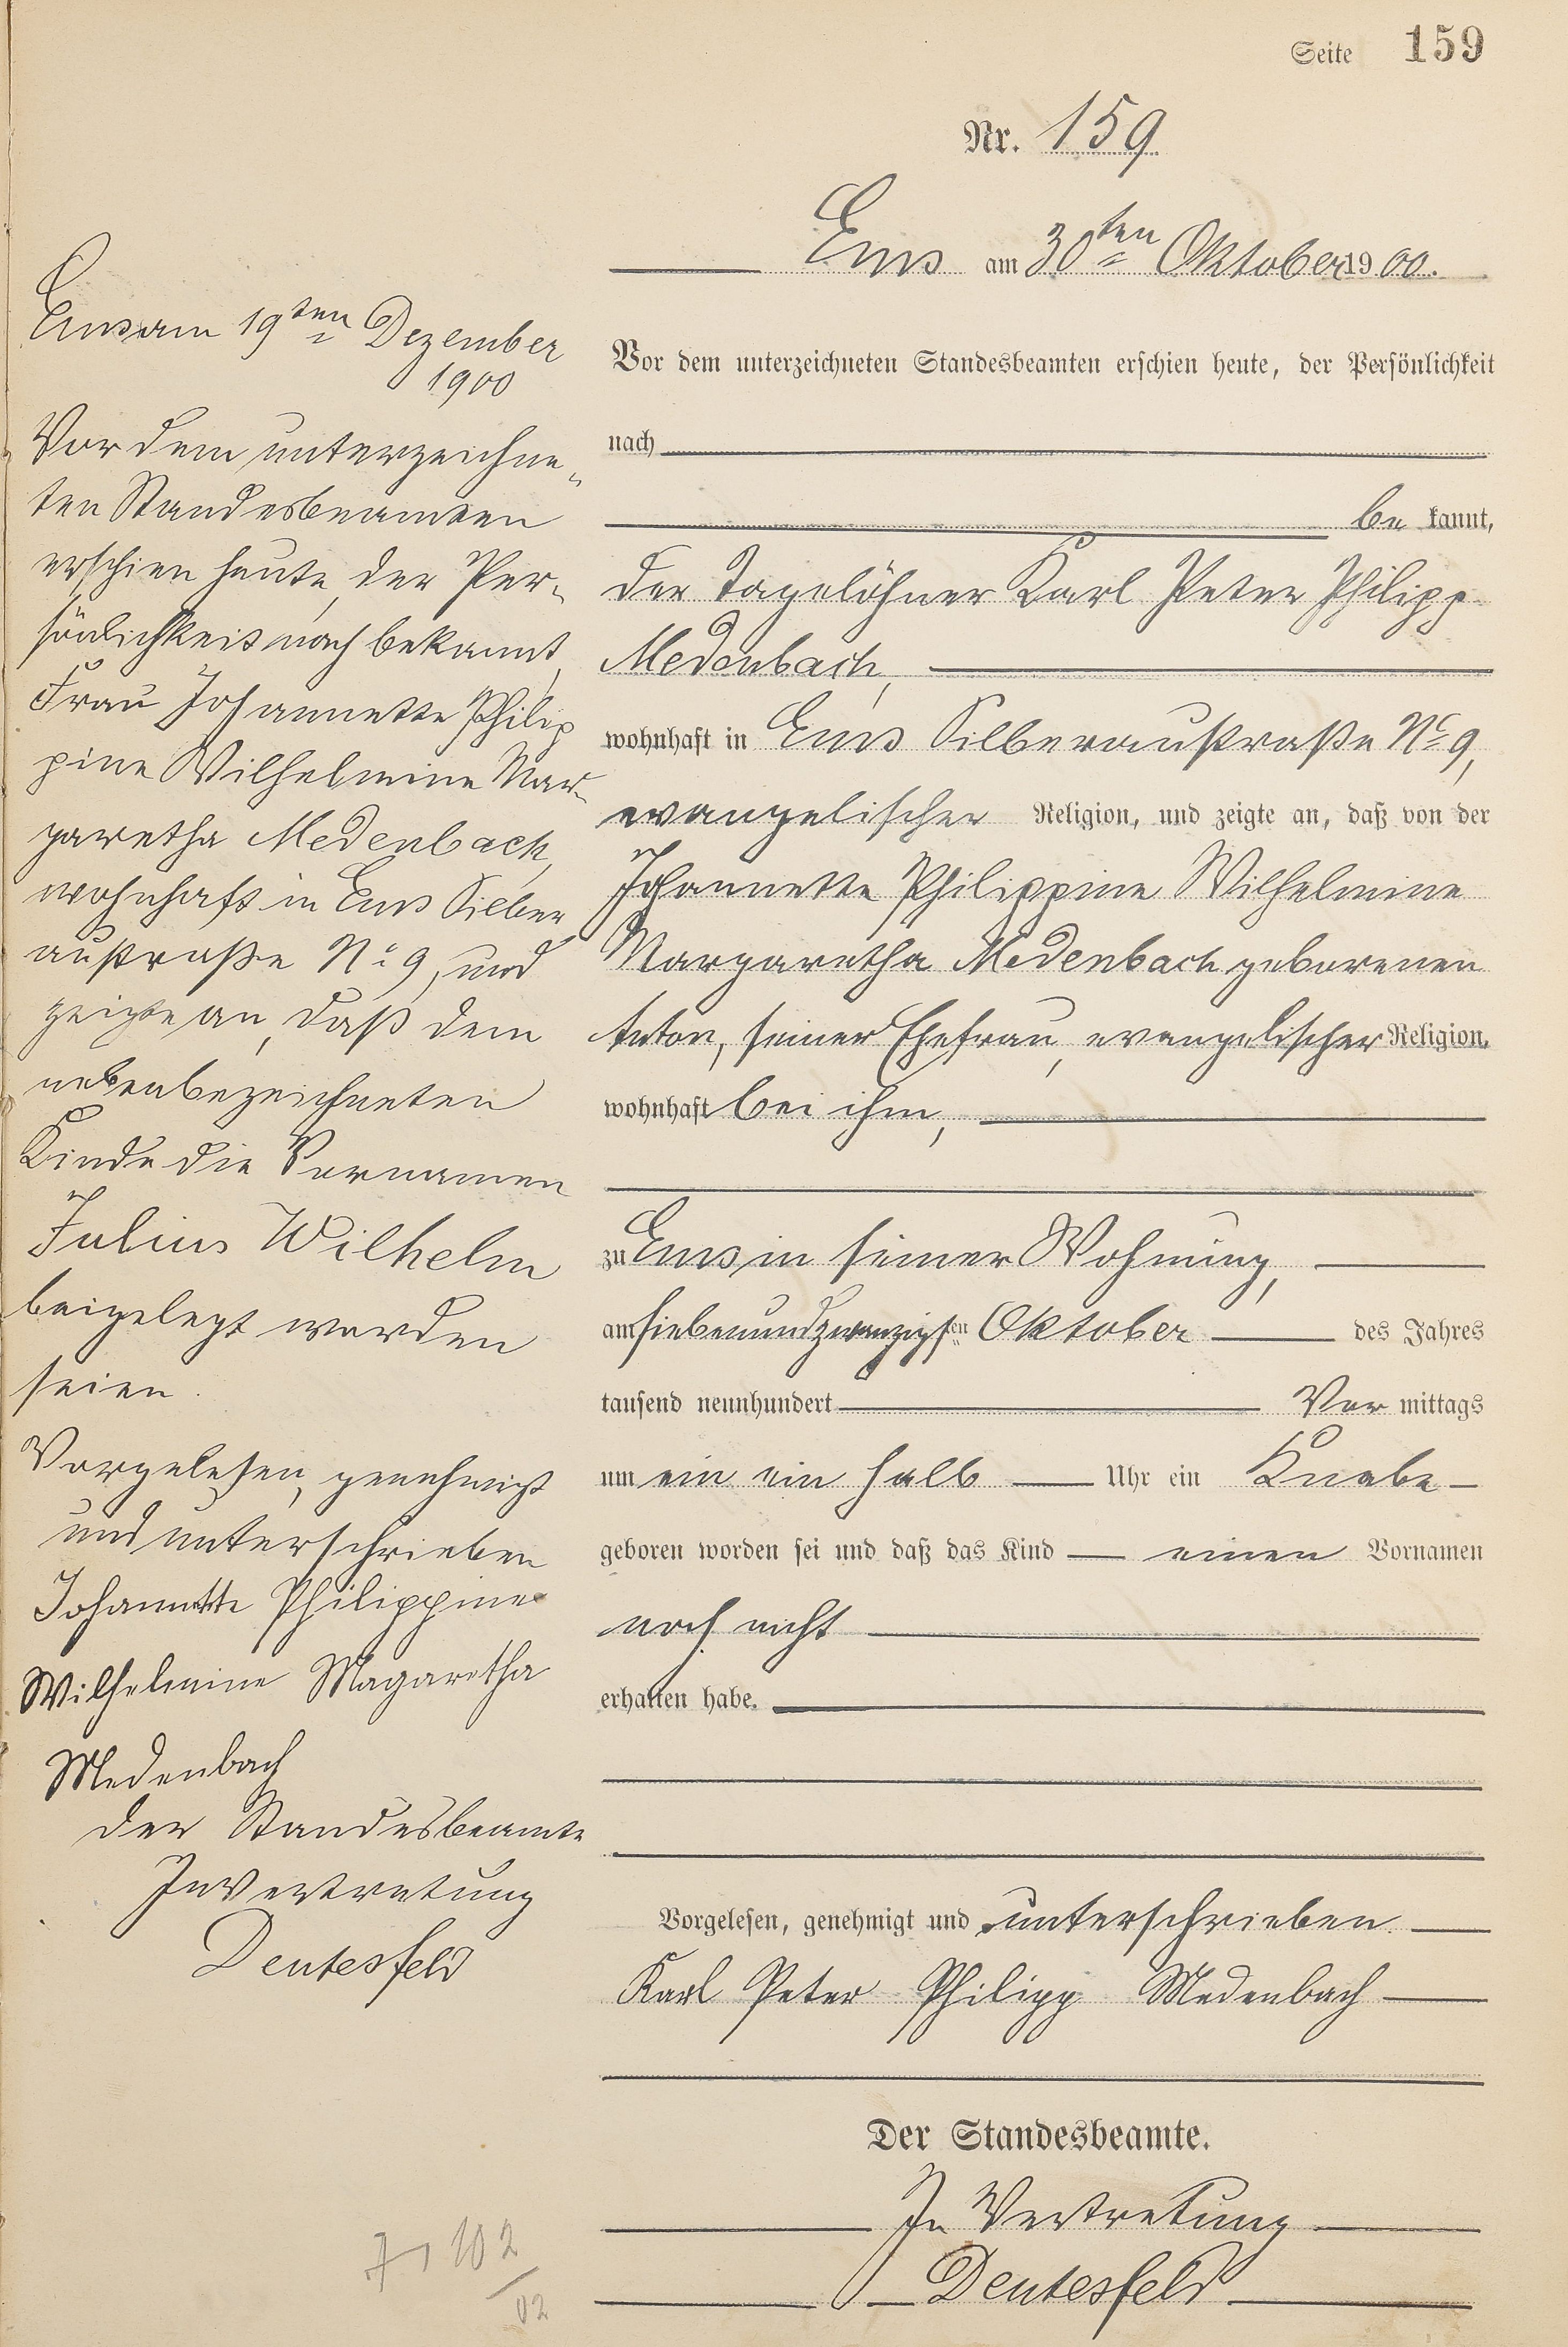 Seite 159
Nr. 159
Ems am 30ten Oktober 1900.
Vor dem unterzeichneten Standesbeamten erschien heute, der Persönlichkeit
nach
be kannt,
der Tagelöhner Karl Peter Philipp
Medenbach,
wohnhaft in Ems Silberaustraße No 9,
evangelischer Religion, und zeigte an, daß von der
Johannette Philippine Wilhelmine
Margaretha Medenbach geborenen
Anton, seiner Ehefrau, evangelischer Religion,
wohnhaft bei ihm,
zu Ems in seiner Wohnung,
am siebenundzwanzigsten Oktober des Jahres
tausend neunhundert Vor mittags
um ein ein halb Uhr ein Knabe
geboren worden sei und daß das Kind einen Vornamen
noch nicht
erhalten habe.
Vorgelesen, genehmigt und unterschrieben
Karl Peter Philipp Medenbach
Der Standesbeamte.
In Vertretung
Deutesfeld
Ems am 19ten Dezember
1900
Vor dem unterzeichne-
ten Standesbeamten
erschien heute, der Per-
sönlichkeit nach bekannt,
Frau Johannette Philip
pine Wilhelmine Mar-
garetha Medenbach,
wohnhaft in Ems Silber
austraße No 9, und
zeigte an, daß dem
nebenbezeichneten
Kinde die Vornamen
Julius Wilhelm
beigelegt worden
seien.
Vorgelesen, genehmigt
und unterschrieben
Johannette Philippine
Wilhelmine Magaretha
Medenbach
Der Standesbeamte
In Vertretung
Deutesfeld
102
02